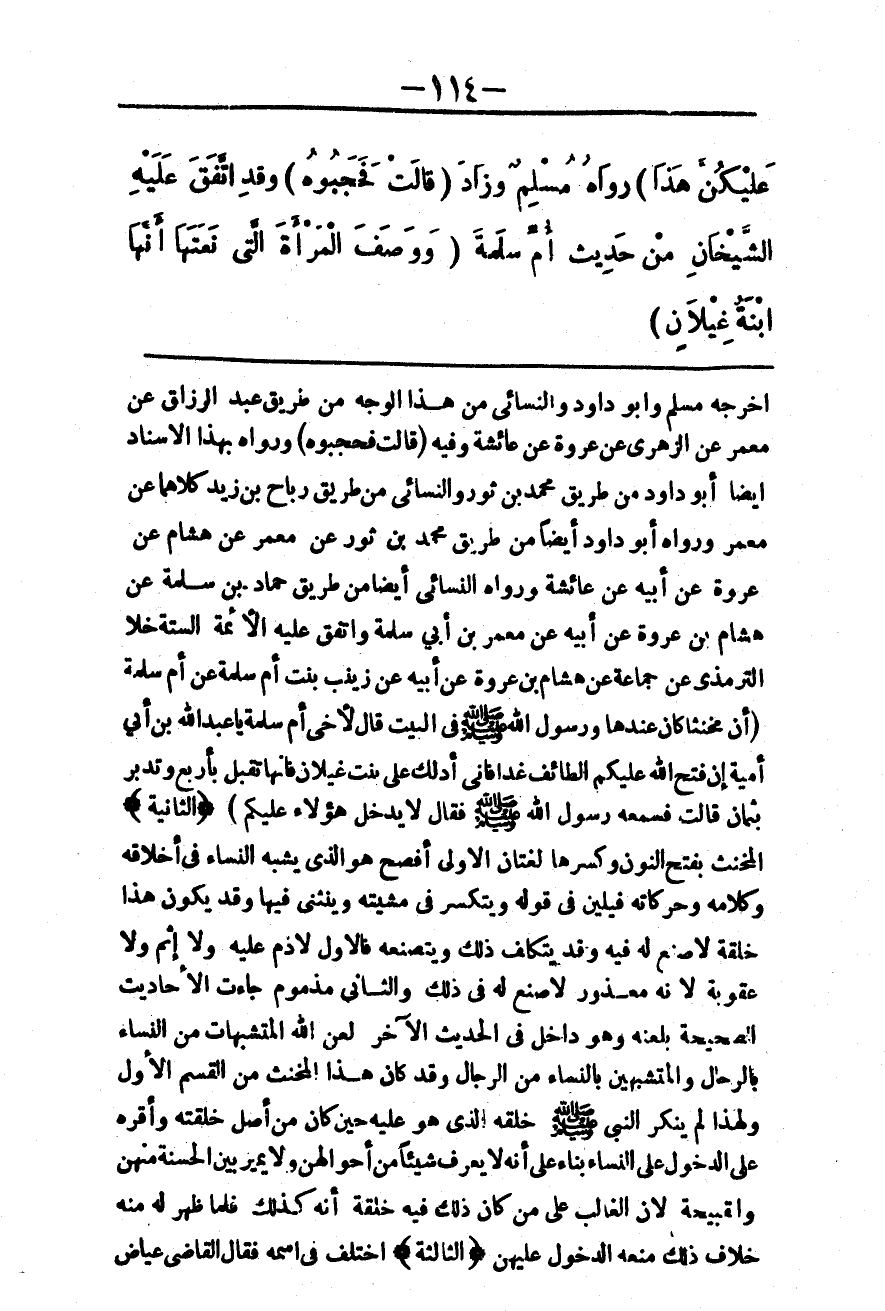 -١١٤-
عَلَيْكُنَّ هَذَا) رواهُ مُسْلِمٌ وزادَ (قالَتْ فَحَجَبُوهُ) وقدِ اتَّفَقَ عَلَيْهِ
الشَّيْخَانِ مِنْ حَدِيث أُمِّ سلَمةَ (وَوَصَفَ الْمَرْأَةَ الَّتِى نَعَتَهَا أَنَّهَا
ابْنَةُ غَيْلَانَ)
اخرجه مسلم وابو داود والنسائى من هـذا الوجه من طريق عبد الرزاق عن
معمر عن الزهرى عن عروة عن عائشة وفيه (قالت فحجبوه) ورواه بهذا الاسناد
ايضا أبو داود من طريق محمد بن ثور والنسائى من طريق رباح بن زيد كلاهما عن
معمر ورواه أبو داود أيضاً من طريق محمد بن ثور عن معمر عن هشام عن
عروة عن أبيه عن عائشة ورواه النسائى أيضا من طريق حماد بن سـلمة عن
هشام بن عروة عن أبيه عن معمر بن أبي سلمة واتفق عليه الأئمة الستة خلا
الترمذى عن جماعة عن هشام بن عروة عن أبيه عن زينب بنت أم سلمة عن أم سلمة
(أن مخنثا كان عندها ورسول الله ﷺ فى البيت قال لأخى أم سلمة يا عبدالله بن أبي
أمية إن فتح الله عليكم الطائف غدا فانى أدلك على بنت غيلان فانها تقبل بأربع وتدبر
بثمان قالت فسمعه رسول الله ﷺ فقال لا يدخل هؤلاء عليكم) ﴿الثانية﴾
المخنث بفتح النون وكسرها لغتان الاولى أفصح هو الذى يشبه النساء فى أخلاقه
وكلامه وحركاته فيلين فى قوله ويتكسر فى مشيته وينثنى فيها وقد يكون هذا
خلقة لا صنع له فيه وقد يتكلف ذلك ويتصنعه فالاول لا ذم عليه ولا إثم ولا
عقوبة لا نه معـذور لا صنع له فى ذلك والثـاني مذموم جاءت الأحاديث
الصحيحة بلعنه وهو داخل فى الحديث الآخر لعن الله المتشبهات من النساء
بالرجال والمتشبهين بالنساء من الرجال وقد كان هـذا المخنث من القسم الأول
ولهذا لم ينكر النبي ﷺ خلقه الذى هو عليه حين كان من أصل خلقته وأقره
على الدخول على النساء بناء على أنه لا يعرف شيئاً من أحوالهن ولا يميز بين الحسنة منهن
والقبيحة لان الغالب على من كان ذلك فيه خلقة أنه كـذلك فلما ظهر له منه
خلاف ذلك منعه الدخول عليهن ﴿الثالثة﴾ اختلف فى اسمه فقال القاضى عياض